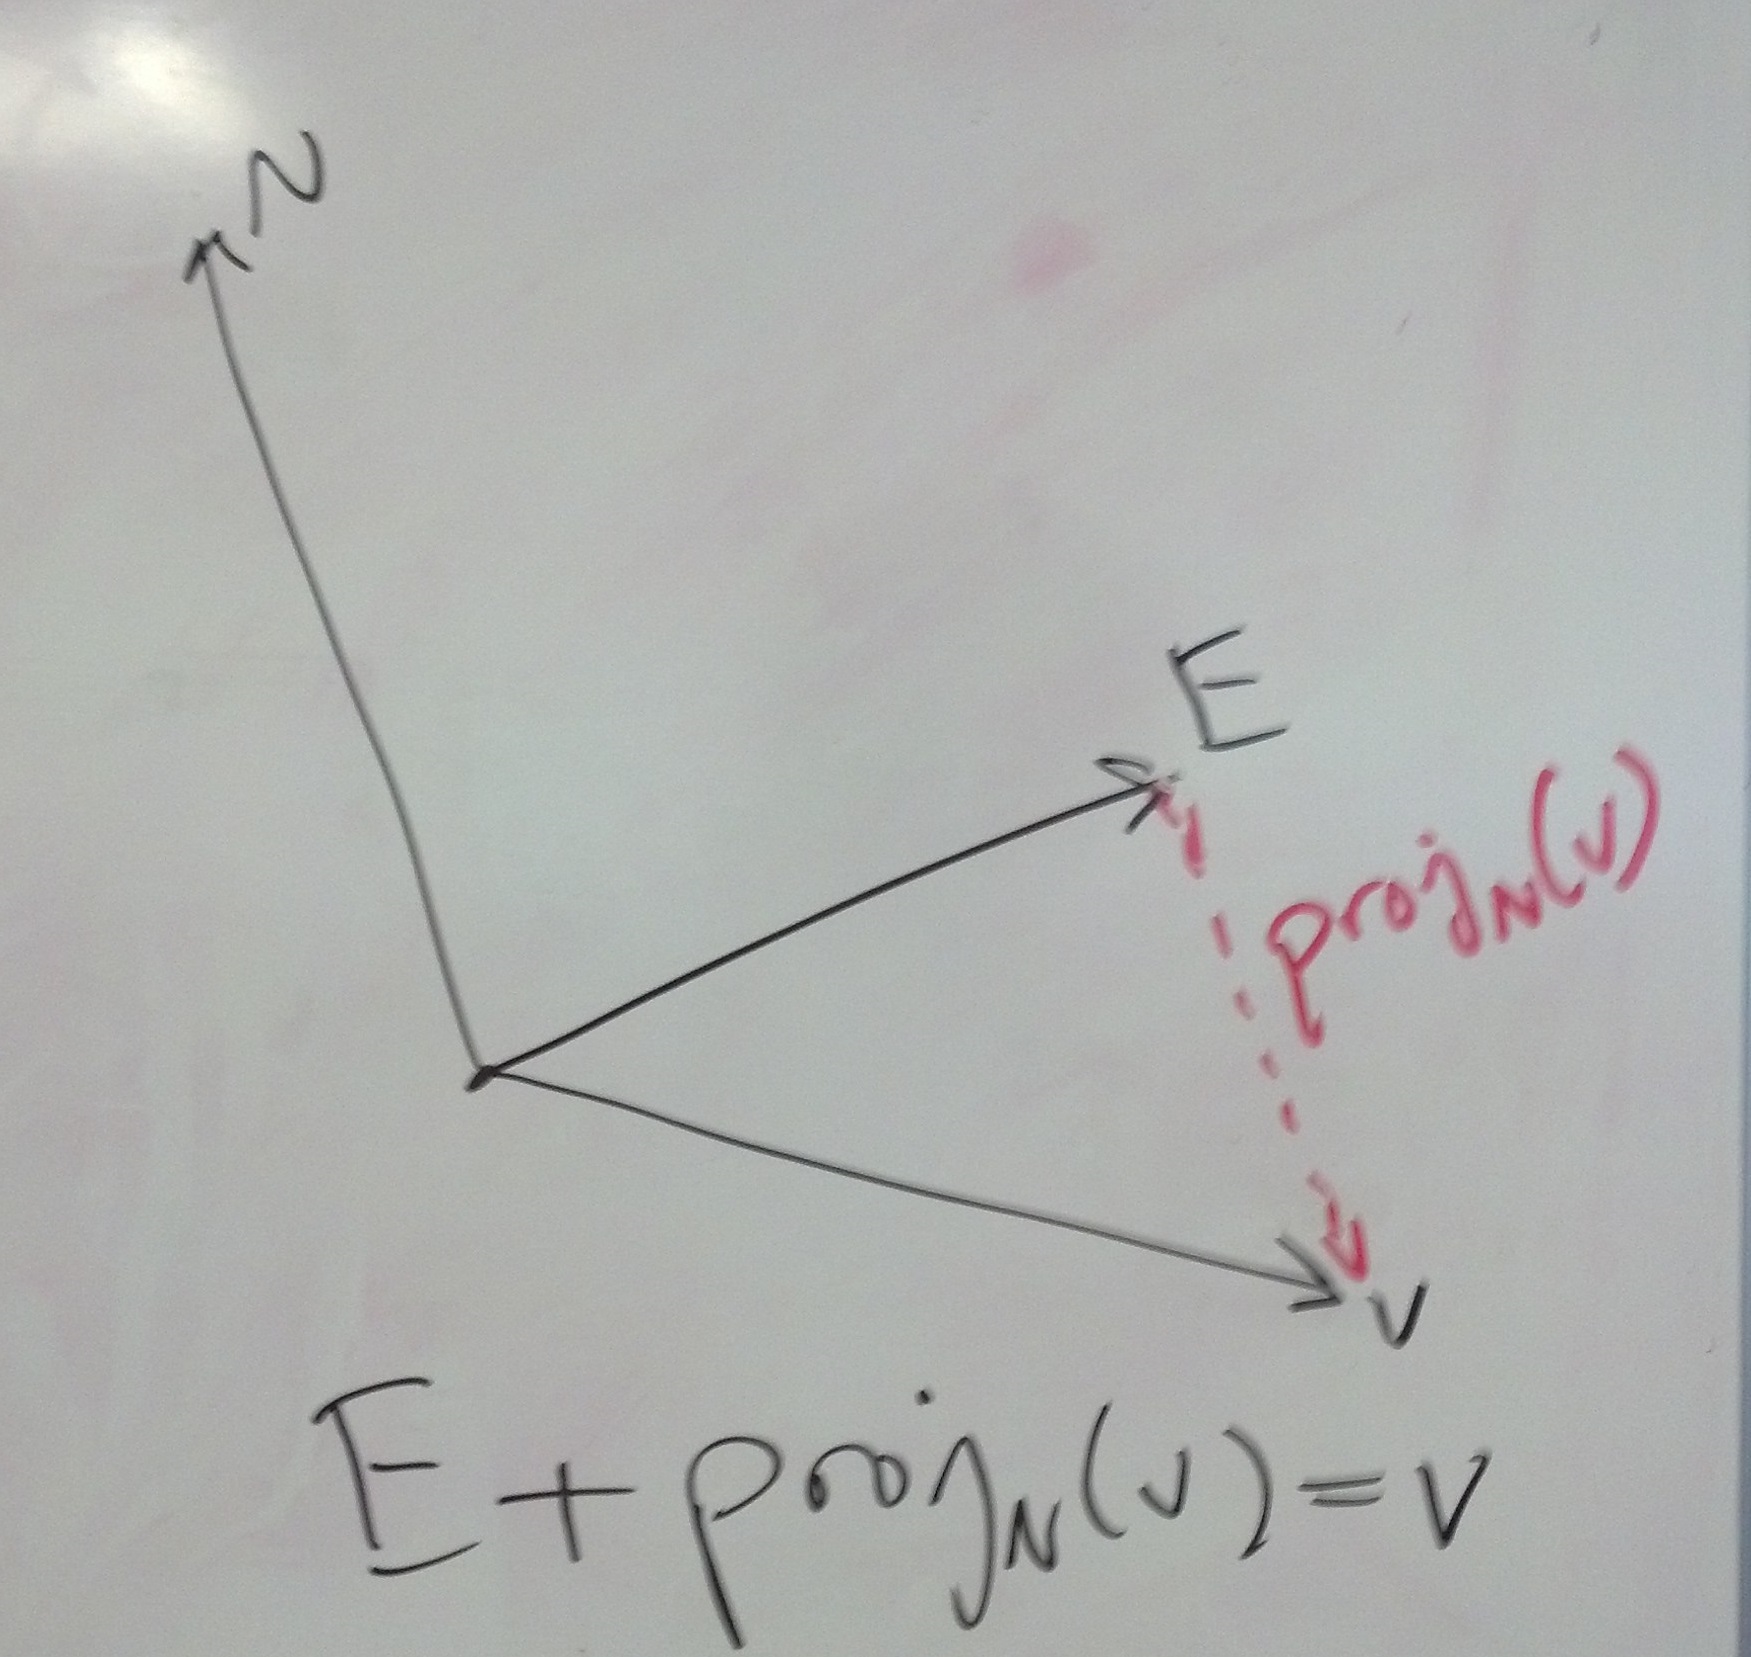 N
E
proj_N(v)
v
E + proj_N(v) = v